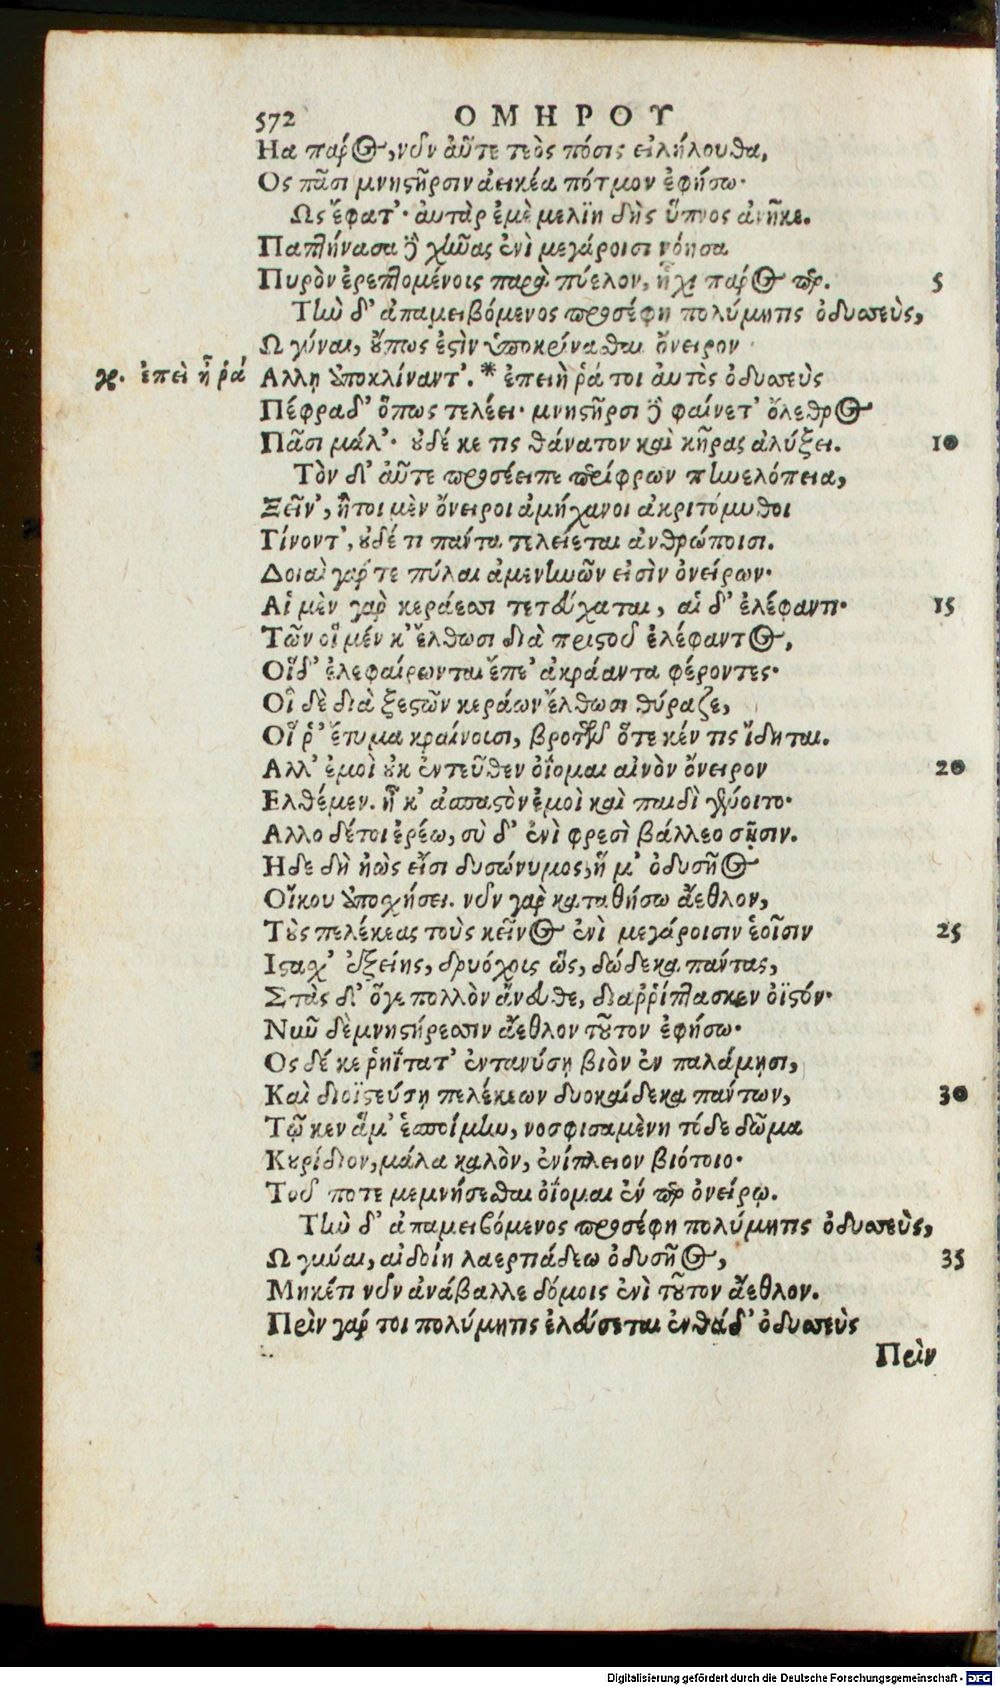 572 ΟΜΗΡΟΥ
Ηα πάρος, νῦν αὖτε τεὸς πόσις εἰλήλουθα,
Ος πᾶσι μνηστῆρσιν ἀεικέα πότμον ἐφήσω·
Ως ἔφατ'· αὐτὰρ ἐμὲ μελιηδὴς ὕπνος ἀνῆκε.
Παπτήνασα δὲ χῆνας ἐνὶ μεγάροισι νόησα
Πυρὸν ἐρεπτομένοις παρὰ πύελον, ἧχι πάρος περ. 5
Τὴν δ' ἀπαμειβόμενος προσέφη πολύμητις ὀδυσσεὺς,
Ω γύναι, οὔπως ἐστὶν ὑποκρίνασθαι ὄνειρον
γρ. ἐπεὶ ἦ ῥά Αλλη ἀποκλίναντ'. * ἐπειὴ ῥά τοι αὐτὸς ὀδυσσεὺς
Πέφραδ' ὅπως τελέει· μνηστῆρσι δὲ φαίνετ' ὄλεθρος
Πᾶσι μάλ'· οὐδέ κε τις θάνατον καὶ κῆρας ἀλύξει. 10
Τὸν δ' αὖτε προσέειπε περίφρων πηνελόπεια,
Ξεῖν', ἤτοι μὲν ὄνειροι ἀμήχανοι ἀκριτόμυθοι
Γίνοντ', οὐδέ τι πάντα τελείεται ἀνθρώποισι.
Δοιαὶ γάρ τε πύλαι ἀμενηνῶν εἰσὶν ὀνείρων·
Αἱ μὲν γὰρ κεράεσσι τετεύχαται, αἱ δ' ἐλέφαντι· 15
Τῶν οἳ μέν κ' ἔλθωσι διὰ πριστοῦ ἐλέφαντος,
Οἵ δ' ἐλεφαίρωνται ἔπε' ἀκράαντα φέροντες·
Οἳ δὲ διὰ ξεστῶν κεράων ἔλθωσι θύραζε,
Οἵ ῥ' ἔτυμα κραίνουσι, βροτῶν ὅτε κέν τις ἴδηται.
Αλλ' ἐμοὶ οὐκ ἐντεῦθεν ὀΐομαι αἰνὸν ὄνειρον 20
Ελθέμεν. ἦ κ' ἀσπαστὸν ἐμοὶ καὶ παιδὶ γένοιτο·
Αλλο δέ τοι ἐρέω, σὺ δ' ἐνὶ φρεσὶ βάλλεο σῇσιν.
Ηδε δὴ ἠὼς εἶσι δυσώνυμος, ἥ μ' ὀδυσῆος
Οἴκου ἀποσχήσει. νῦν γὰρ καταθήσω ἄεθλον,
Τοὺς πελέκεας τοὺς κεῖνος ἐνὶ μεγάροισιν ἑοῖσιν 25
Ιστασχ' ἑξείης, δρυόχοις ὣς, δώδεκα πάντας,
Στὰς δ' ὅγε πολλὸν ἄνευθε, διαῤῥίπτασκεν ὀϊστόν·
Νῦν δὲ μνηστήρεσσιν ἄεθλον τοῦτον ἐφήσω·
Ος δέ κε ῥηΐτατ' ἐντανύσῃ βιὸν ἐν παλάμῃσι,
Καὶ διοϊστεύσῃ πελέκεων δυοκαίδεκα πάντων, 30
Τῷ κεν ἅμ' ἑσποίμην, νοσφισαμένη τόδε δῶμα
Κουρίδιον, μάλα καλὸν, ἐνίπλειον βιότοιο·
Τοῦ ποτε μεμνήσεσθαι ὀΐομαι ἔν περ ὀνείρῳ.
Τὴν δ' ἀπαμειβόμενος προσέφη πολύμητις ὀδυσσεὺς,
Ω γύναι, αἰδοίη λαερτιάδεω ὀδυσῆος, 35
Μηκέτι νῦν ἀνάβαλλε δόμοις ἐνὶ τοῦτον ἄεθλον.
Πρὶν γάρ τοι πολύμητις ἐλεύσεται ἐνθάδ' ὀδυσσεὺς
Πρὶν
Digitalisierung gefördert durch die Deutsche Forschungsgemeinschaft - DFG